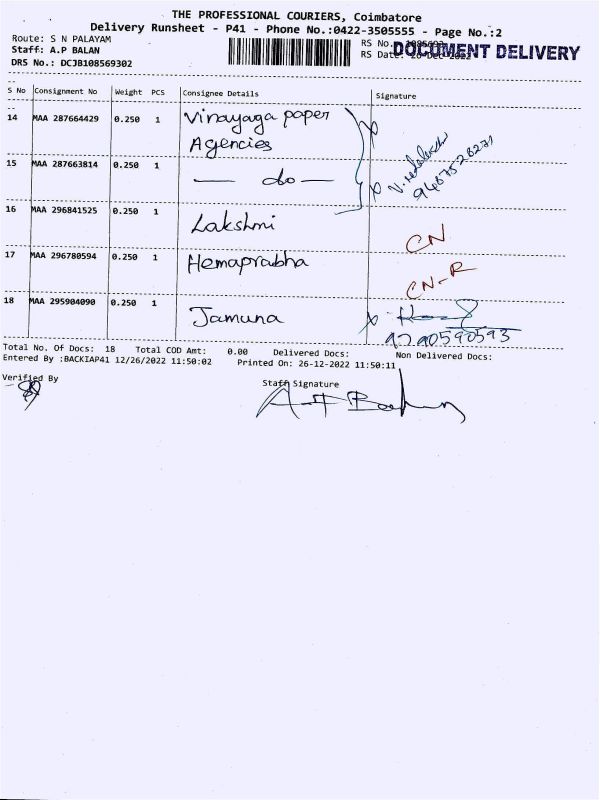 THE PROFESSIONAL COURIERS, Coimbatore
Delivery Runsheet - P41 - Phone No.:0422-3505555 - Page No.:2
Route: S N PALAYAM
Staff: A.P BALAN
DRS No.: DCJB108569302
RS No.
RS Date: 26-Dec-2022
DOCUMENT DELIVERY
S No Consignment No Weight PCS Consignee Details Signature
14 MAA 287664429 0.250 1 Vinayaga paper
Agencies
15 MAA 287663814 0.250 1 — do —
9487528271
16 MAA 296841525 0.250 1 Lakshmi CN
17 MAA 296780594 0.250 1 Hemaprabha CN-R
18 MAA 295904090 0.250 1 Jamuna
9290590593
Total No. Of Docs: 18 Total COD Amt: 0.00 Delivered Docs: Non Delivered Docs:
Entered By :BACKIAP41 12/26/2022 11:50:02 Printed On: 26-12-2022 11:50:11
Verified By Staff Signature